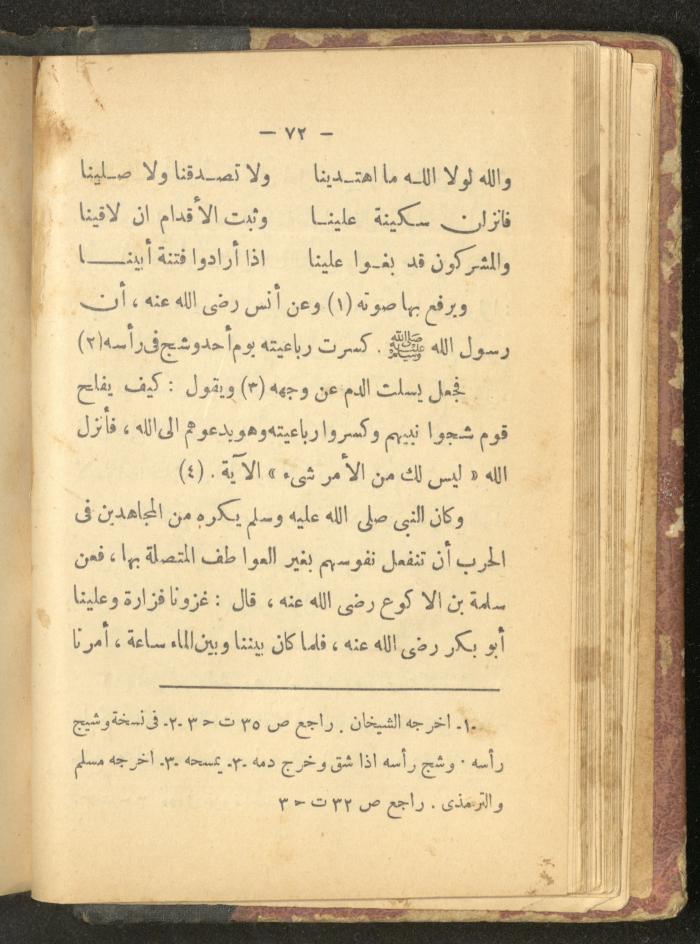 — ٧٢ —
والله لولا الله ما اهتدينا ولا تصدقنا ولا صلينا
فانزلن سكينة علينا وثبت الأقدام ان لاقينا
والمشركون قد بغوا علينا اذا أرادوا فتنة أبينا
ويرفع بها صوته (١) وعن أنس رضى الله عنه ، أن
رسول الله ﷺ . كسرت رباعيته يوم أحد وشج فى رأسه (٢)
فجعل يسلت الدم عن وجهه (٣) ويقول : كيف يفلح
قوم شجوا نبيهم وكسروا رباعيته وهو يدعوهم الى الله ، فأنزل
الله « ليس لك من الأمر شىء » الآية . (٤)
وكان النبى صلى الله عليه وسلم يكره من المجاهدين فى
الحرب أن تنفعل نفوسهم بغير العواطف المتصلة بها ، فعن
سلمة بن الاكوع رضى الله عنه ، قال : غزونا فزارة وعلينا
أبو بكر رضى الله عنه ، فلما كان بيننا وبين الماء ساعة ، أمرنا
-١- اخرجه الشيخان . راجع ص ٣٥ ت ح ٣ -٢- فى نسخة وشيج
رأسه . وشج رأسه اذا شق وخرج دمه -٣- يمسحه -٣- اخرجه مسلم
والترمذى . راجع ص ٣٢ ت ح ٣